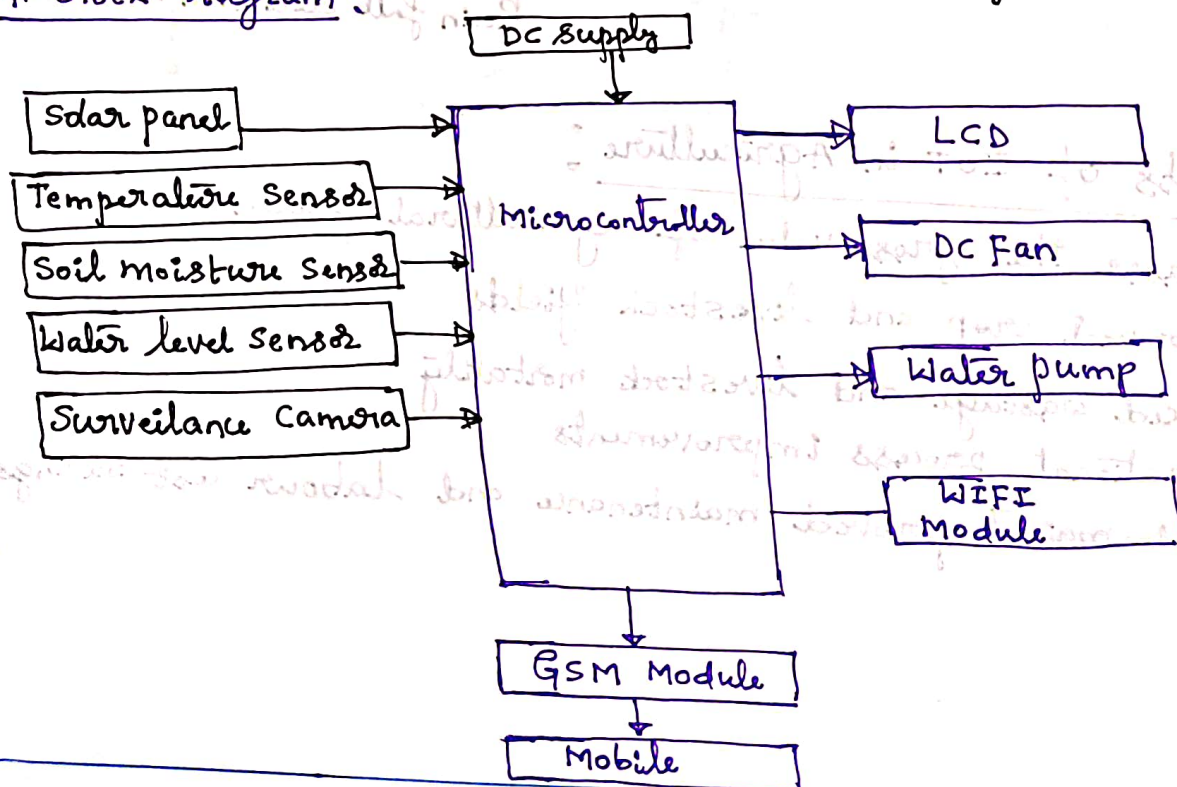 Block Diagram.
DC Supply
Solar panel
Temperature Sensor
Soil moisture Sensor
Water level Sensor
Surveilance Camera
Microcontroller
LCD
DC Fan
Water pump
WIFI
Module
GSM Module
Mobile